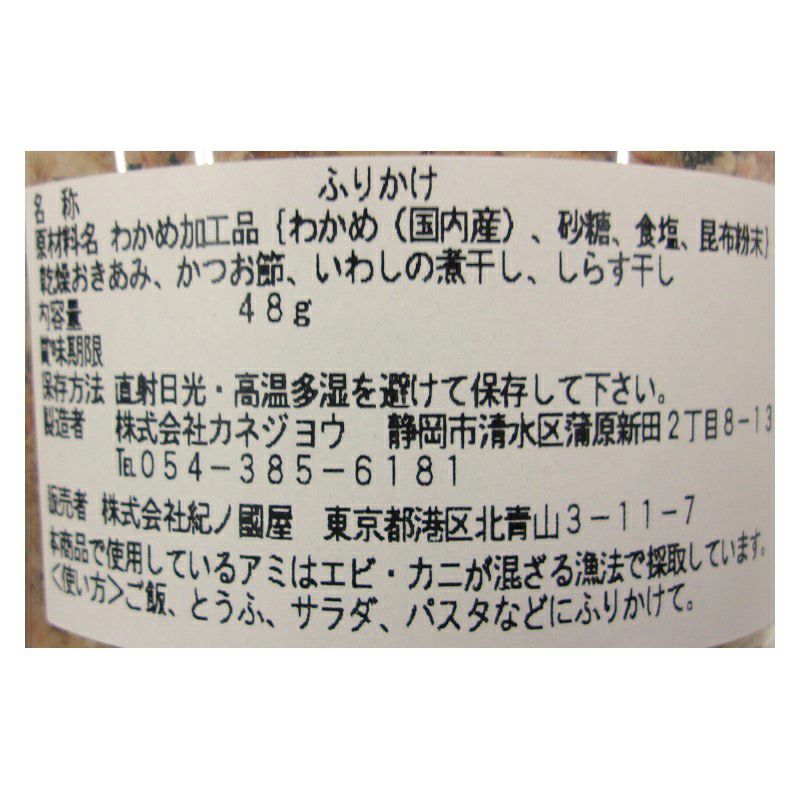 名 称 ふりかけ
原材料名 わかめ加工品{わかめ（国内産）、砂糖、食塩、昆布粉末}
乾燥おきあみ、かつお節、いわしの煮干し、しらす干し
内容量 48g
賞味期限
保存方法 直射日光・高温多湿を避けて保存して下さい。
製造者 株式会社カネジョウ 静岡市清水区蒲原新田2丁目8-13
℡054-385-6181
販売者 株式会社紀ノ國屋 東京都港区北青山3-11-7
本商品で使用しているアミはエビ・カニが混ざる漁法で採取しています。
<使い方>ご飯、とうふ、サラダ、パスタなどにふりかけて。